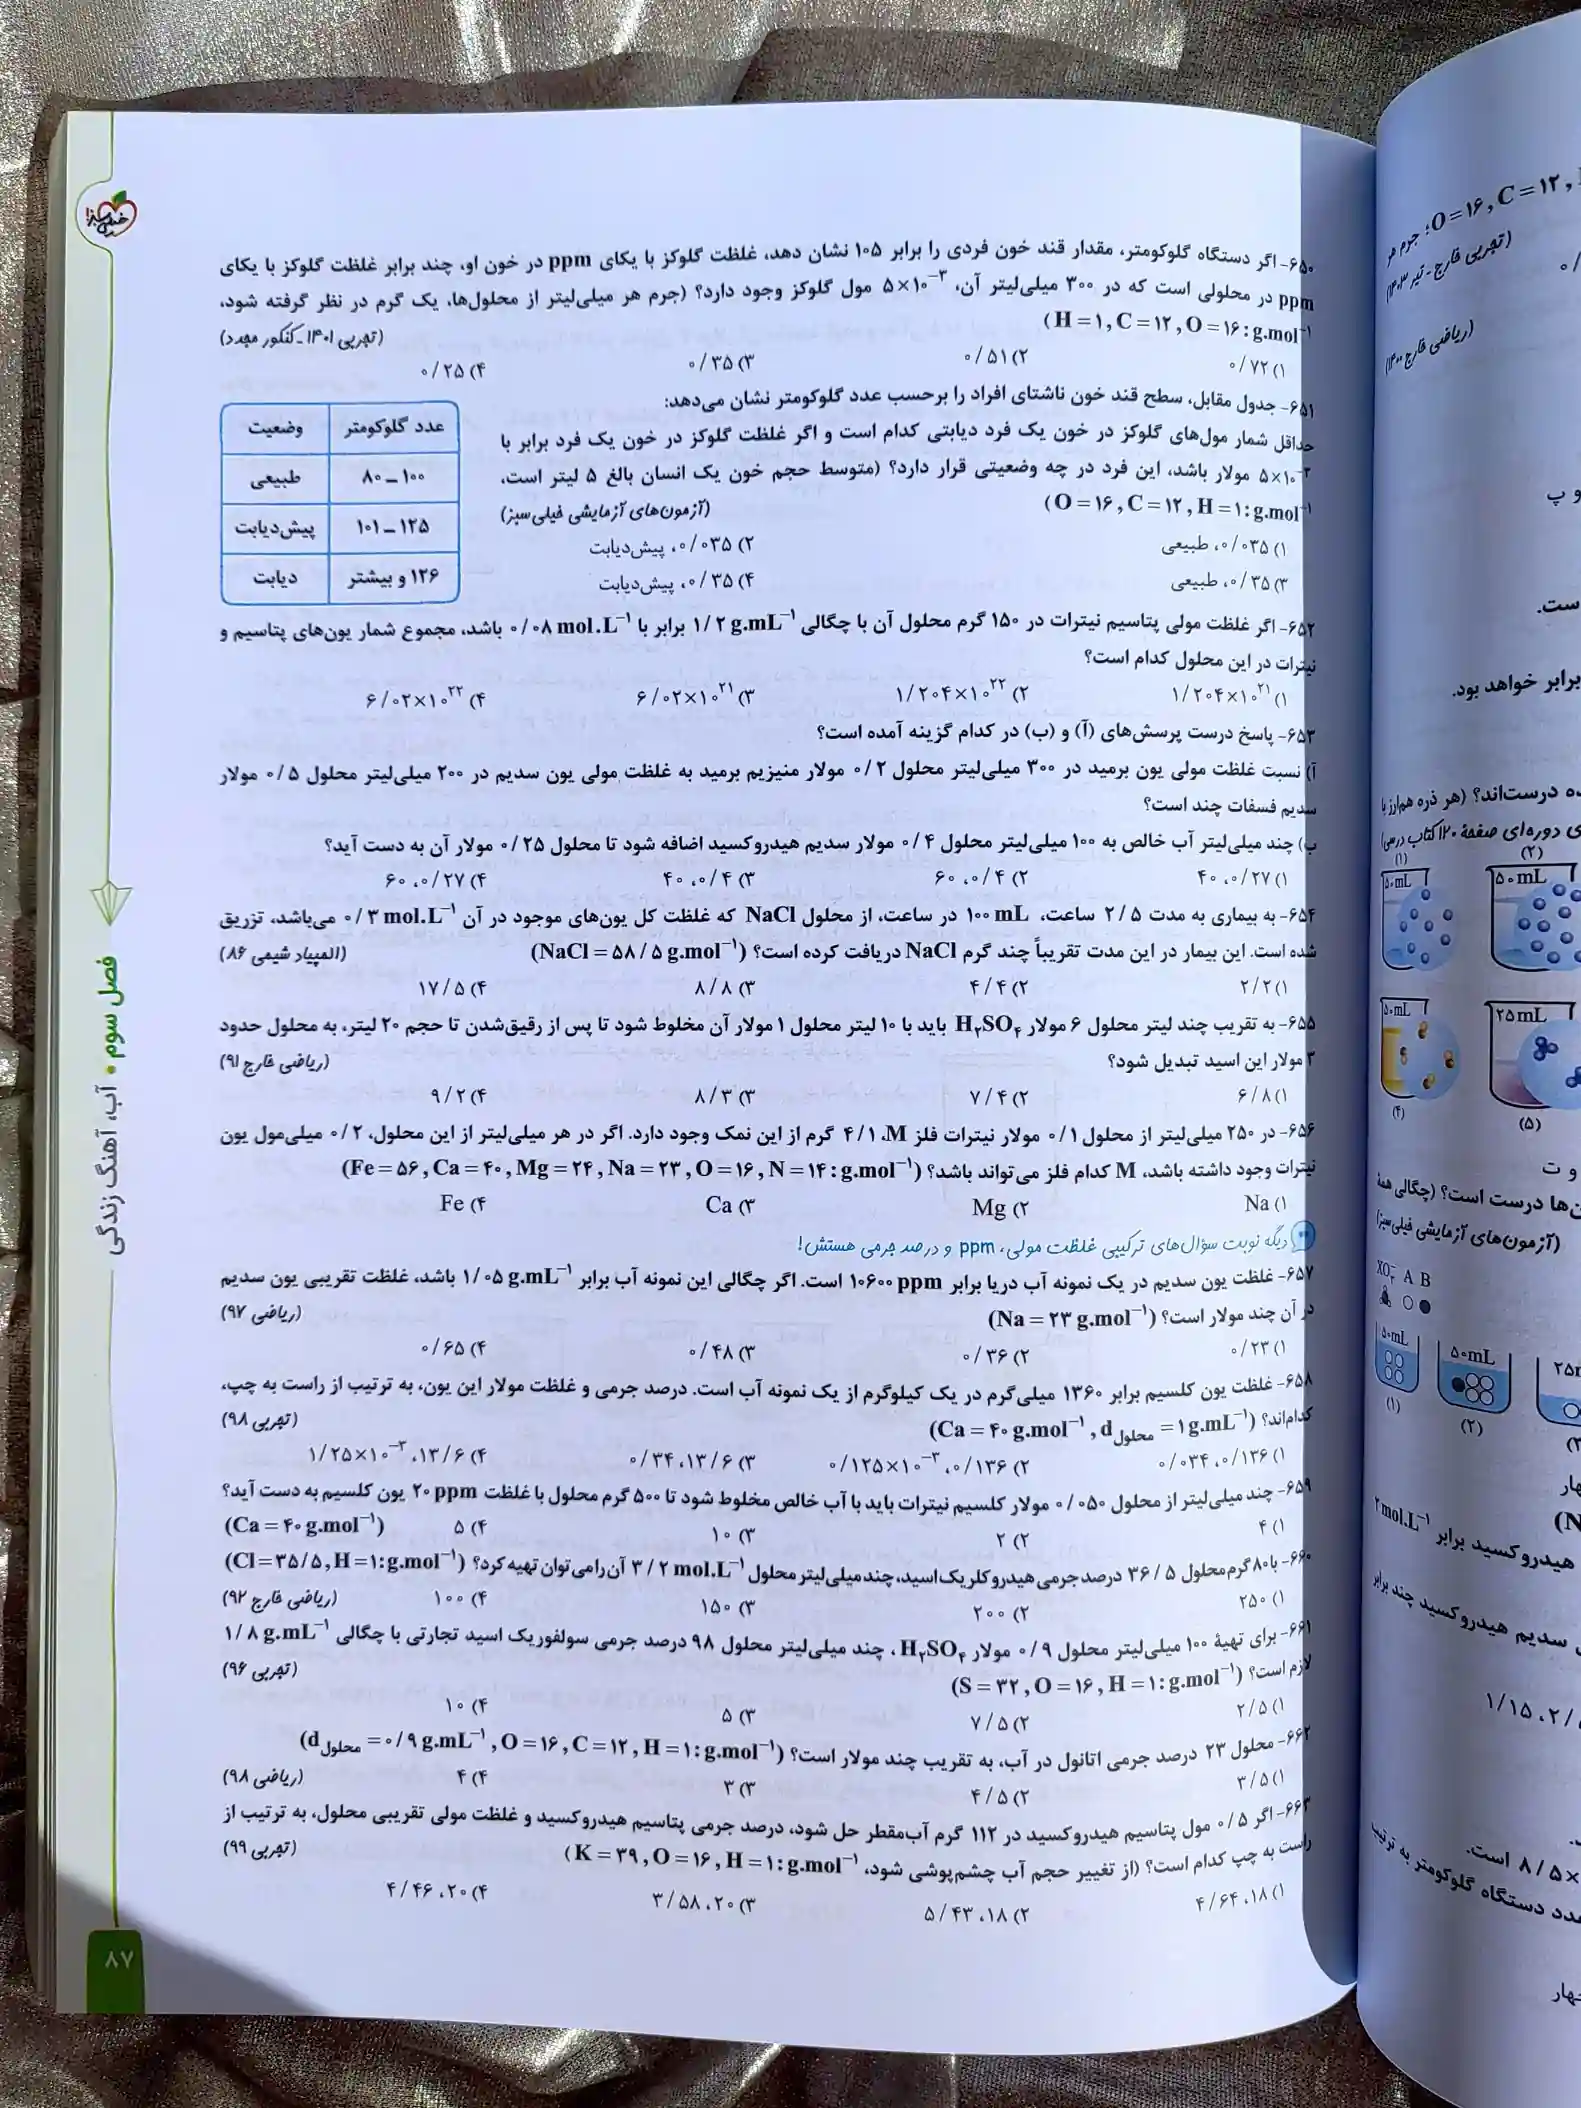 ۶۵۰- اگر دستگاه گلوکومتر، مقدار قند خون فردی را برابر ۱۰۵ نشان دهد، غلظت گلوکز با یکای ppm در خون او، چند برابر غلظت گلوکز با یکای
ppm در محلولی است که در ۳۰۰ میلی‌لیتر آن، ۵×۱۰⁻³ مول گلوکز وجود دارد؟ (جرم هر میلی‌لیتر از محلول‌ها، یک گرم در نظر گرفته شود،
(H = ۱, C = ۱۲, O = ۱۶ : g.mol⁻¹ (تجربی ۱۴۰۱ـ کنکور مجدد)
۱) ۰/۷۲ ۲) ۰/۵۱ ۳) ۰/۳۵ ۴) ۰/۲۵
۶۵۱- جدول مقابل، سطح قند خون ناشتای افراد را برحسب عدد گلوکومتر نشان می‌دهد:
حداقل شمار مول‌های گلوکز در خون یک فرد دیابتی کدام است و اگر غلظت گلوکز در خون یک فرد برابر با
۵×۱۰⁻³ مولار باشد، این فرد در چه وضعیتی قرار دارد؟ (متوسط حجم خون یک انسان بالغ ۵ لیتر است.
(O = ۱۶, C = ۱۲, H = ۱ : g.mol⁻¹ (آزمون‌های آزمایشی خیلی سبز)
۱) ۰/۰۳۵، طبیعی ۲) ۰/۰۳۵، پیش‌دیابت
۳) ۰/۳۵، طبیعی ۴) ۰/۳۵، پیش‌دیابت
عدد گلوکومتر وضعیت
۸۰ ـ ۱۰۰ طبیعی
۱۰۱ ـ ۱۲۵ پیش‌دیابت
۱۲۶ و بیشتر دیابت
۶۵۲- اگر غلظت مولی پتاسیم نیترات در ۱۵۰ گرم محلول آن با چگالی ۱/۲ g.mL⁻¹ برابر با ۰/۰۸ mol.L⁻¹ باشد، مجموع شمار یون‌های پتاسیم و
نیترات در این محلول کدام است؟
۱) ۱/۲۰۴×۱۰²¹ ۲) ۱/۲۰۴×۱۰²² ۳) ۶/۰۲×۱۰²¹ ۴) ۶/۰۲×۱۰²²
۶۵۳- پاسخ درست پرسش‌های (آ) و (ب) در کدام گزینه آمده است؟
آ) نسبت غلظت مولی یون برمید در ۳۰۰ میلی‌لیتر محلول ۰/۲ مولار منیزیم برمید به غلظت مولی یون سدیم در ۲۰۰ میلی‌لیتر محلول ۰/۵ مولار
سدیم فسفات چند است؟
ب) چند میلی‌لیتر آب خالص به ۱۰۰ میلی‌لیتر محلول ۰/۴ مولار سدیم هیدروکسید اضافه شود تا محلول ۰/۲۵ مولار آن به دست آید؟
۱) ۰/۲۷، ۴۰ ۲) ۰/۴، ۶۰ ۳) ۰/۴، ۴۰ ۴) ۰/۲۷، ۶۰
۶۵۴- به بیماری به مدت ۲/۵ ساعت، ۱۰۰ mL در ساعت، از محلول NaCl که غلظت کل یون‌های موجود در آن ۰/۳ mol.L⁻¹ می‌باشد، تزریق
شده است. این بیمار در این مدت تقریباً چند گرم NaCl دریافت کرده است؟ (NaCl = ۵۸/۵ g.mol⁻¹) (المپیاد شیمی ۸۶)
۱) ۲/۲ ۲) ۴/۴ ۳) ۸/۸ ۴) ۱۷/۵
۶۵۵- به تقریب چند لیتر محلول ۶ مولار H₂SO₄ باید با ۱۰ لیتر محلول ۱ مولار آن مخلوط شود تا پس از رقیق‌شدن تا حجم ۲۰ لیتر، به محلول حدود
۳ مولار این اسید تبدیل شود؟ (ریاضی خارج ۹۱)
۱) ۶/۸ ۲) ۷/۴ ۳) ۸/۳ ۴) ۹/۲
۶۵۶- در ۲۵۰ میلی‌لیتر از محلول ۰/۱ مولار نیترات فلز M، ۴/۱ گرم از این نمک وجود دارد. اگر در هر میلی‌لیتر از این محلول، ۰/۲ میلی‌مول یون
نیترات وجود داشته باشد، M کدام فلز می‌تواند باشد؟ (Fe = ۵۶, Ca = ۴۰, Mg = ۲۴, Na = ۲۳, O = ۱۶, N = ۱۴ : g.mol⁻¹)
۱) Na ۲) Mg ۳) Ca ۴) Fe
دیگه نوبت سؤال‌های ترکیبی غلظت مولی، ppm و درصد جرمی هستش!
۶۵۷- غلظت یون سدیم در یک نمونه آب دریا برابر ۱۰۶۰۰ ppm است. اگر چگالی این نمونه آب برابر ۱/۰۵ g.mL⁻¹ باشد، غلظت تقریبی یون سدیم
در آن چند مولار است؟ (Na = ۲۳ g.mol⁻¹) (ریاضی ۹۷)
۱) ۰/۲۳ ۲) ۰/۳۶ ۳) ۰/۴۸ ۴) ۰/۶۵
۶۵۸- غلظت یون کلسیم برابر ۱۳۶۰ میلی‌گرم در یک کیلوگرم از یک نمونه آب است. درصد جرمی و غلظت مولار این یون، به ترتیب از راست به چپ،
کدام‌اند؟ (Ca = ۴۰ g.mol⁻¹, d محلول = ۱ g.mL⁻¹) (تجربی ۹۸)
۱) ۰/۱۳۶، ۰/۰۳۴ ۲) ۰/۱۳۶، ۰/۱۲۵×۱۰⁻³ ۳) ۱۳/۶، ۰/۳۴ ۴) ۱۳/۶، ۱/۲۵×۱۰⁻³
۶۵۹- چند میلی‌لیتر از محلول ۰/۰۵۰ مولار کلسیم نیترات باید با آب خالص مخلوط شود تا ۵۰۰ گرم محلول با غلظت ۲۰ ppm یون کلسیم به دست آید؟
۱) ۴ ۲) ۲ ۳) ۱۰ ۴) ۵ (Ca = ۴۰ g.mol⁻¹)
۶۶۰- با ۸۰ گرم محلول ۳۶/۵ درصد جرمی هیدروکلریک اسید، چند میلی‌لیتر محلول ۳/۲ mol.L⁻¹ آن را می‌توان تهیه کرد؟ (Cl = ۳۵/۵, H = ۱ : g.mol⁻¹)
۱) ۲۵۰ ۲) ۲۰۰ ۳) ۱۵۰ ۴) ۱۰۰ (ریاضی خارج ۹۲)
۶۶۱- برای تهیۀ ۱۰۰ میلی‌لیتر محلول ۰/۹ مولار H₂SO₄، چند میلی‌لیتر محلول ۹۸ درصد جرمی سولفوریک اسید تجارتی با چگالی ۱/۸ g.mL⁻¹
لازم است؟ (S = ۳۲, O = ۱۶, H = ۱ : g.mol⁻¹) (تجربی ۹۶)
۱) ۲/۵ ۲) ۷/۵ ۳) ۵ ۴) ۱۰
۶۶۲- محلول ۲۳ درصد جرمی اتانول در آب، به تقریب چند مولار است؟ (d محلول = ۰/۹ g.mL⁻¹, O = ۱۶, C = ۱۲, H = ۱ : g.mol⁻¹)
۱) ۳/۵ ۲) ۴/۵ ۳) ۳ ۴) ۴ (ریاضی ۹۸)
۶۶۳- اگر ۰/۵ مول پتاسیم هیدروکسید در ۱۱۲ گرم آب‌مقطر حل شود، درصد جرمی پتاسیم هیدروکسید و غلظت مولی تقریبی محلول، به ترتیب از
راست به چپ کدام است؟ (از تغییر حجم آب چشم‌پوشی شود، K = ۳۹, O = ۱۶, H = ۱ : g.mol⁻¹) (تجربی ۹۹)
۱) ۱۸، ۴/۶۴ ۲) ۱۸، ۵/۴۳ ۳) ۲۰، ۳/۵۸ ۴) ۲۰، ۴/۴۶
خیلی سبز
فصل سوم • آب، آهنگ زندگی
۸۷
O = ۱۶, C = ۱۲,
جرم هر
(تجربی خارج - تیر ۱۴۰۳)
(ریاضی خارج ۱۴۰۰)
و پ
است.
برابر خواهد بود.
ده درست‌اند؟ (هر ذره هم‌ارز با
ی دوره‌ای صفحۀ ۱۲۰ کتاب درسی)
(۱) (۲)
۵۰mL ۵۰mL
۵۰mL ۲۵mL
(۴) (۵)
و ت
ن‌ها درست است؟ (چگالی همۀ
(آزمون‌های آزمایشی خیلی سبز)
XO₃⁻ A B
۵۰mL ۵۰mL
(۱) (۲)
هیدروکسید برابر ۲ mol.L⁻¹
سدیم هیدروکسید چند برابر
۸/۵× است.
عدد دستگاه گلوکومتر به ترتیب